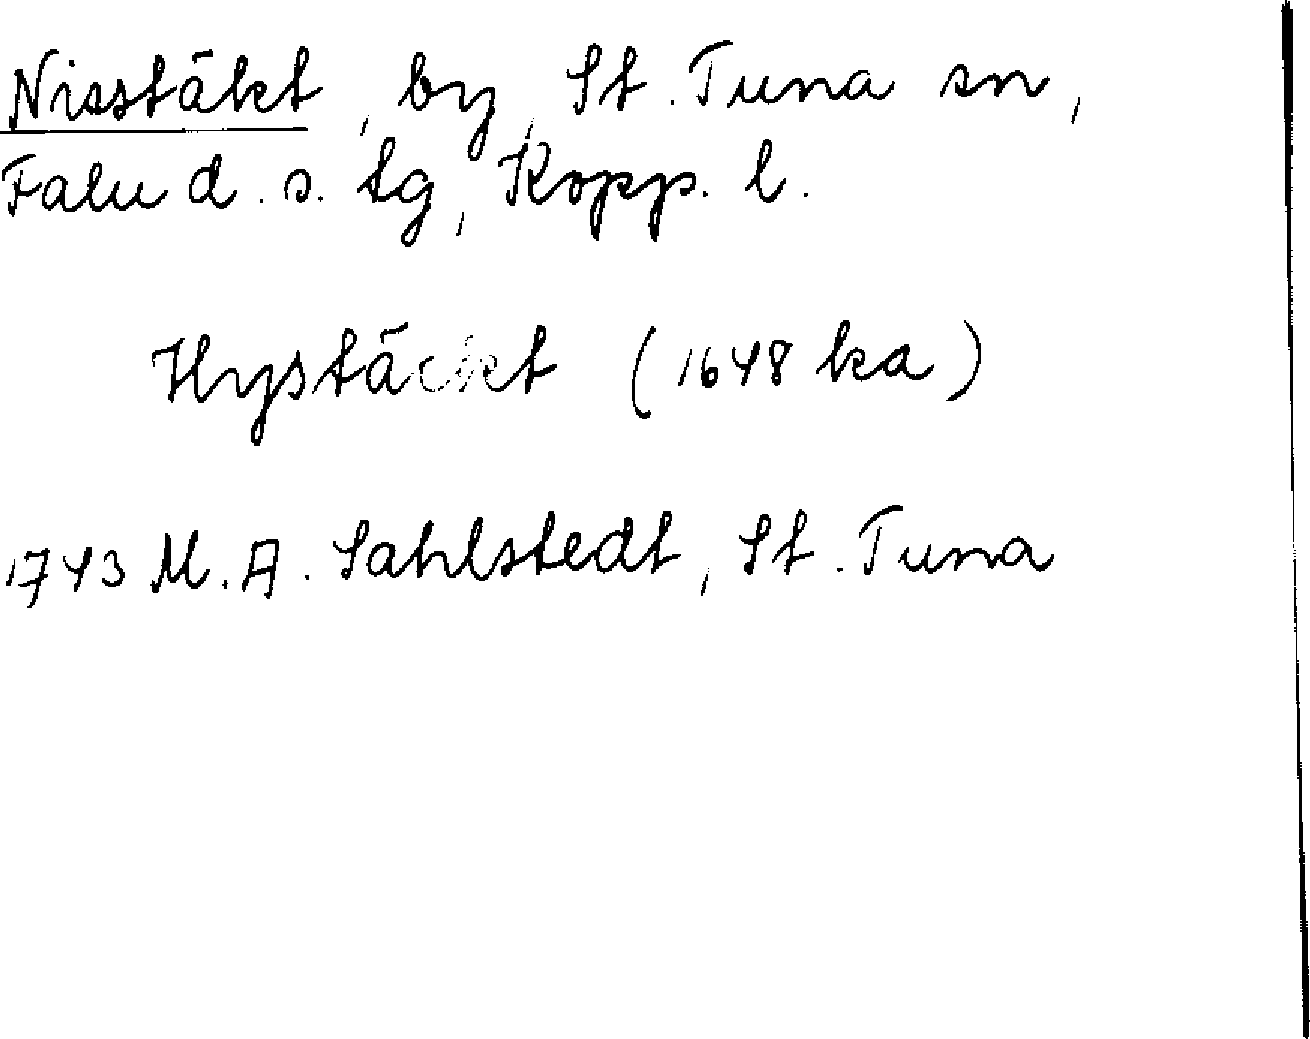 Nisstäkt, by, St. Tuna sn,
Falu d. s. tg, Kopp. l.
Hystäckt (1648 ka)
1743 M. A. Sahlstedt, St. Tuna